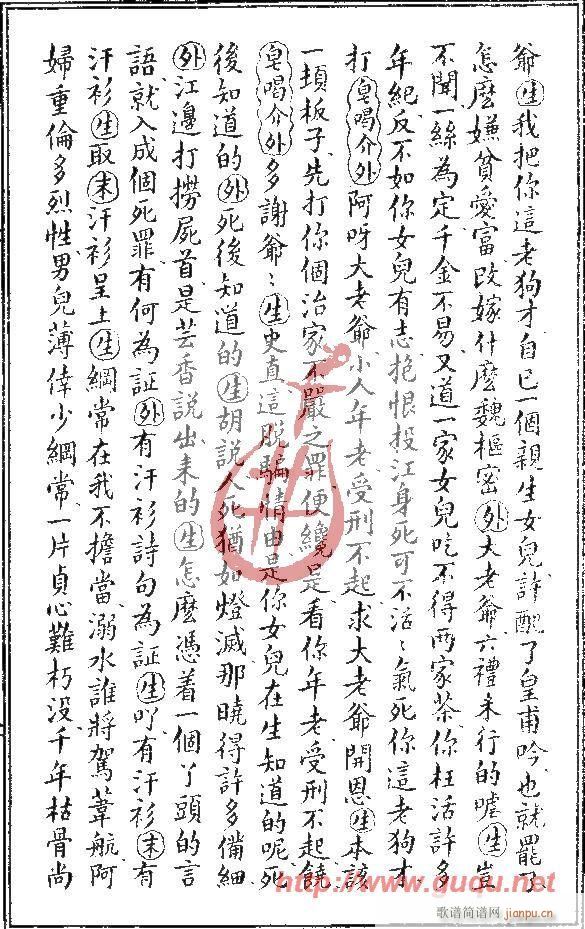 爺生我把你這老狗才自己一個親生女兒許配了皇甫吟也就罷了
怎麽嫌貧愛富改嫁什麽魏樞密外大老爺六禮未行的嘘生豈
不聞一絲為定千金不易又道一家女兒吃不得兩家茶你枉活許多
年紀反不如你女兒有志抱恨投江身死可不活〻氣死你這老狗才
打皂喝介外阿呀大老爺小人年老受刑不起求大老爺開恩生本該
一頓板子先打你個治家不嚴之罪便纔是看你年老受刑不起饒
皂喝介外多謝爺〻生史直這脱騙情由是你女兒在生知道的呢死
後知道的外死後知道的生胡説人死猶如燈滅那曉得許多備細
外江邊打撈屍首是芸香説出来的生怎麽憑着一個丫頭的言
語就入成個死罪有何為証外有汗衫詩句為証生吖有汗衫末有
汗衫生取末汗衫呈上生綱常在我不擔當溺水誰將駕葦航阿
婦重倫多烈性男兒薄倖少綱常一片貞心難朽没千年枯骨尚
http://www.guqu.net
歌谱简谱网
jianpu.cn